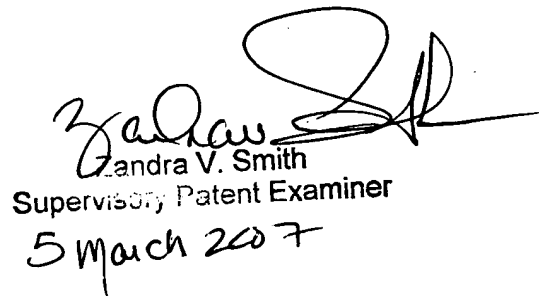 Zandra V. Smith
Supervisory Patent Examiner
5 March 2007